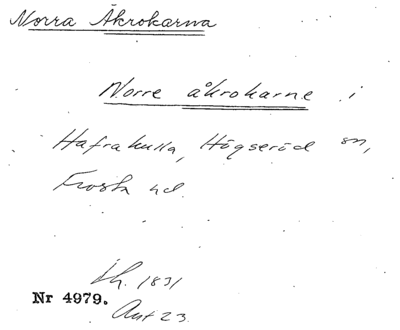 Norra Åkrokarna
Norre åkrokarne i
Hafrakulla, Högseröd sn,
Frosta hd.
Lh. 1831
Nr 4979.
Akt 23.